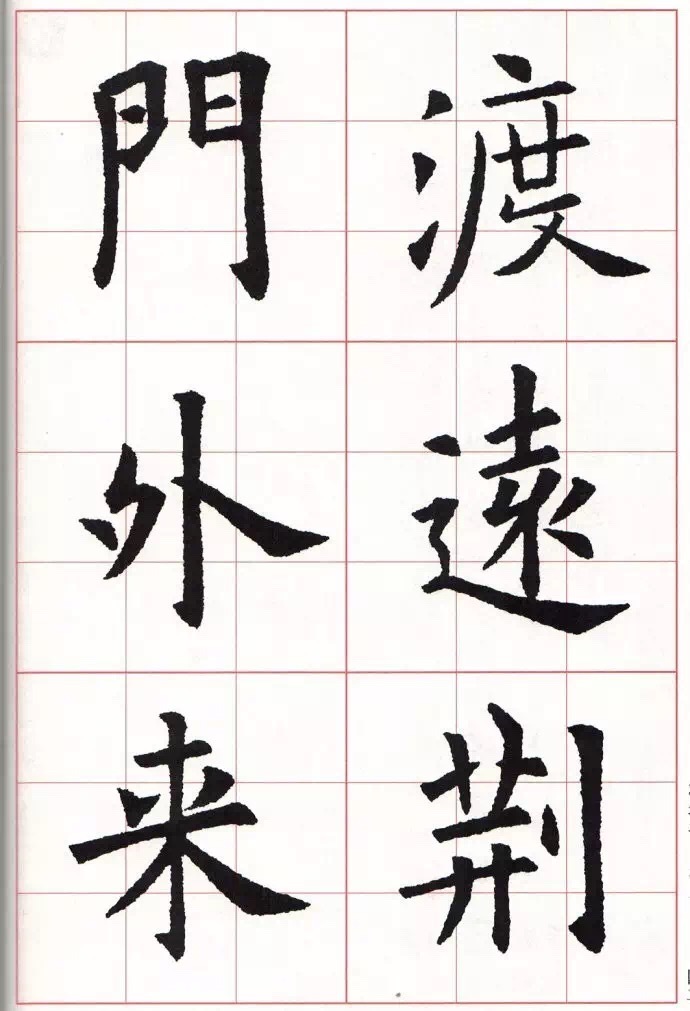 渡遠荊
門外来